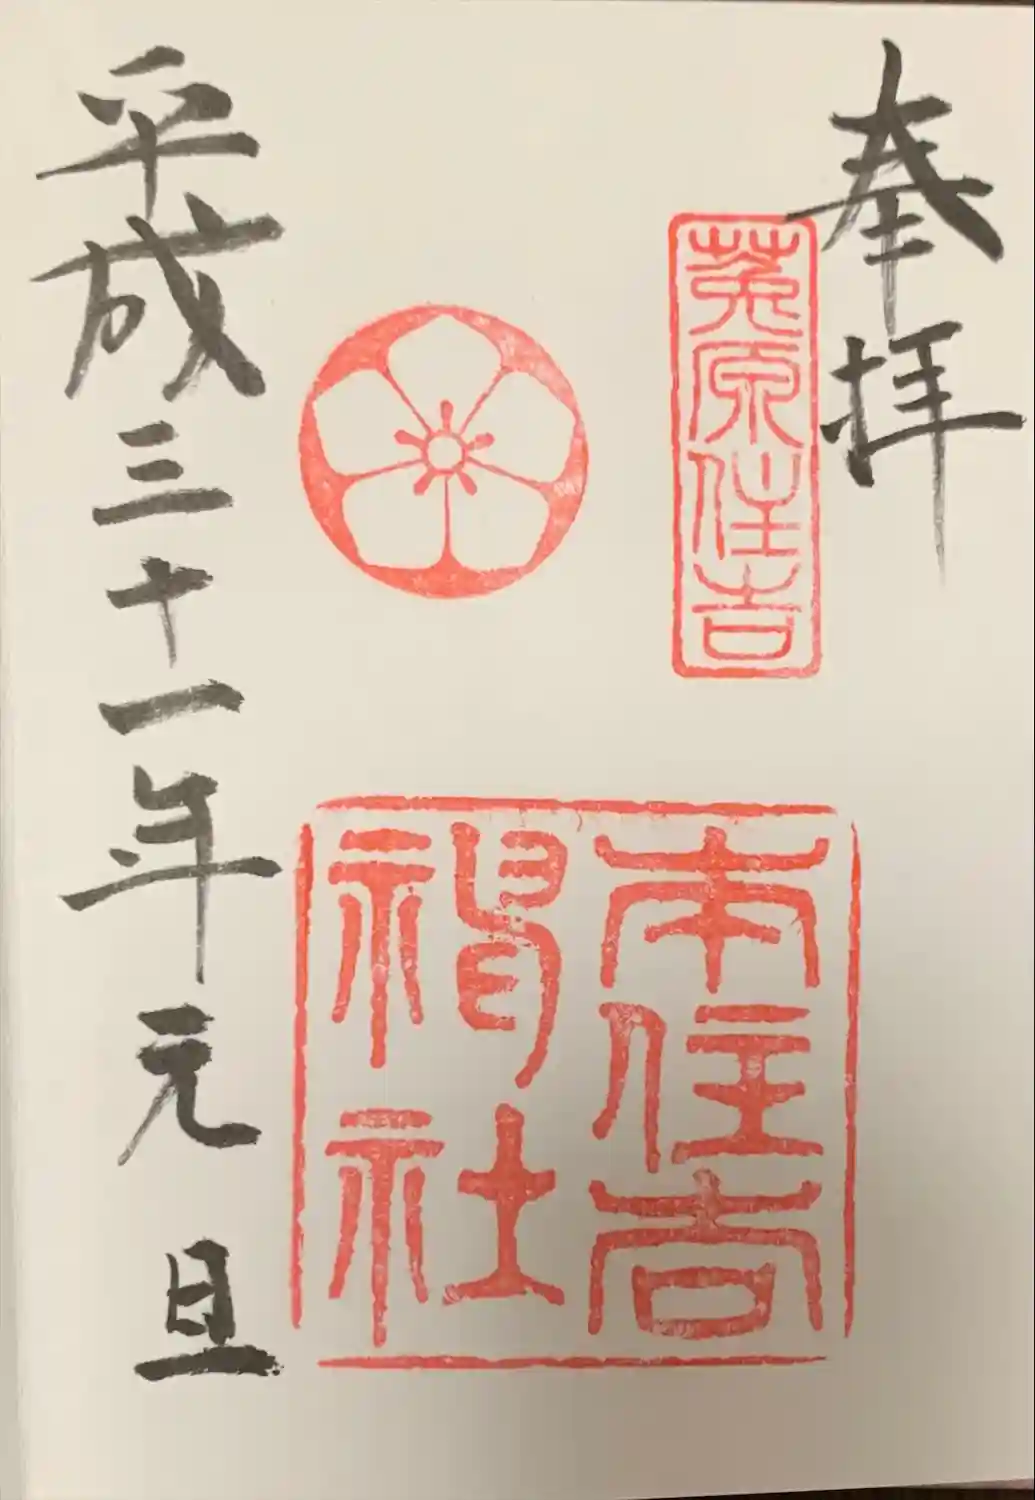 奉拝
菟原住吉
本住吉
神社
平成三十一年元旦